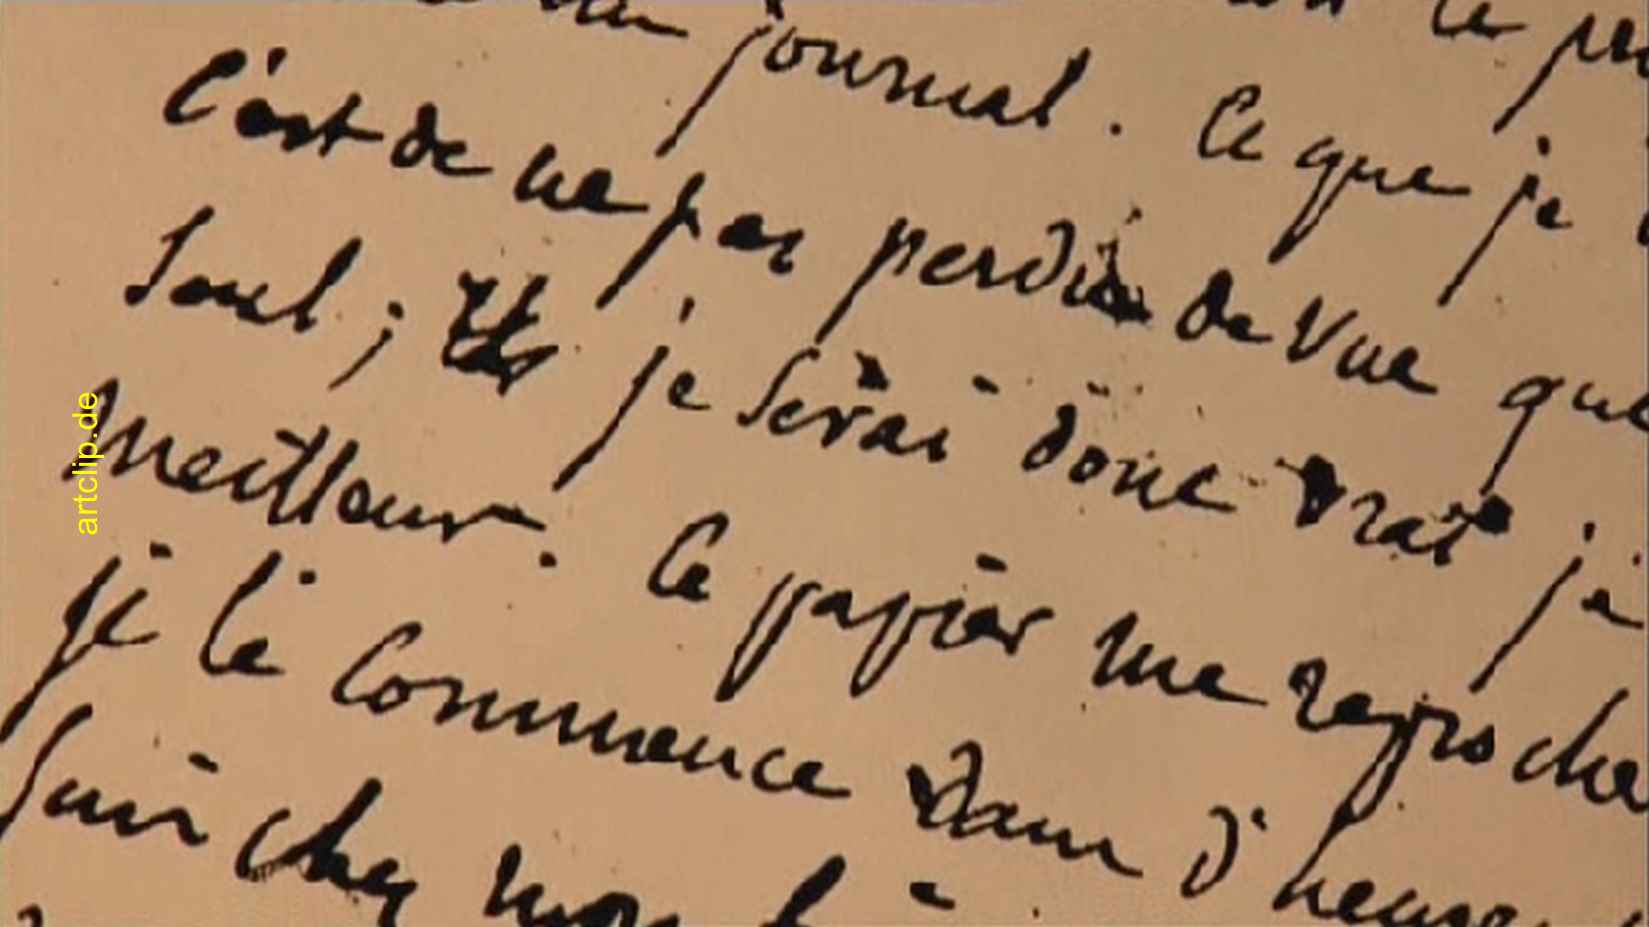 journal. Ce que je
C'est de ne pas perdre de vue que
seul; je serai donc vrai je
meilleur. Ce papier me reproche
je le commence dans d'heure
suis chez moi
artclip.de